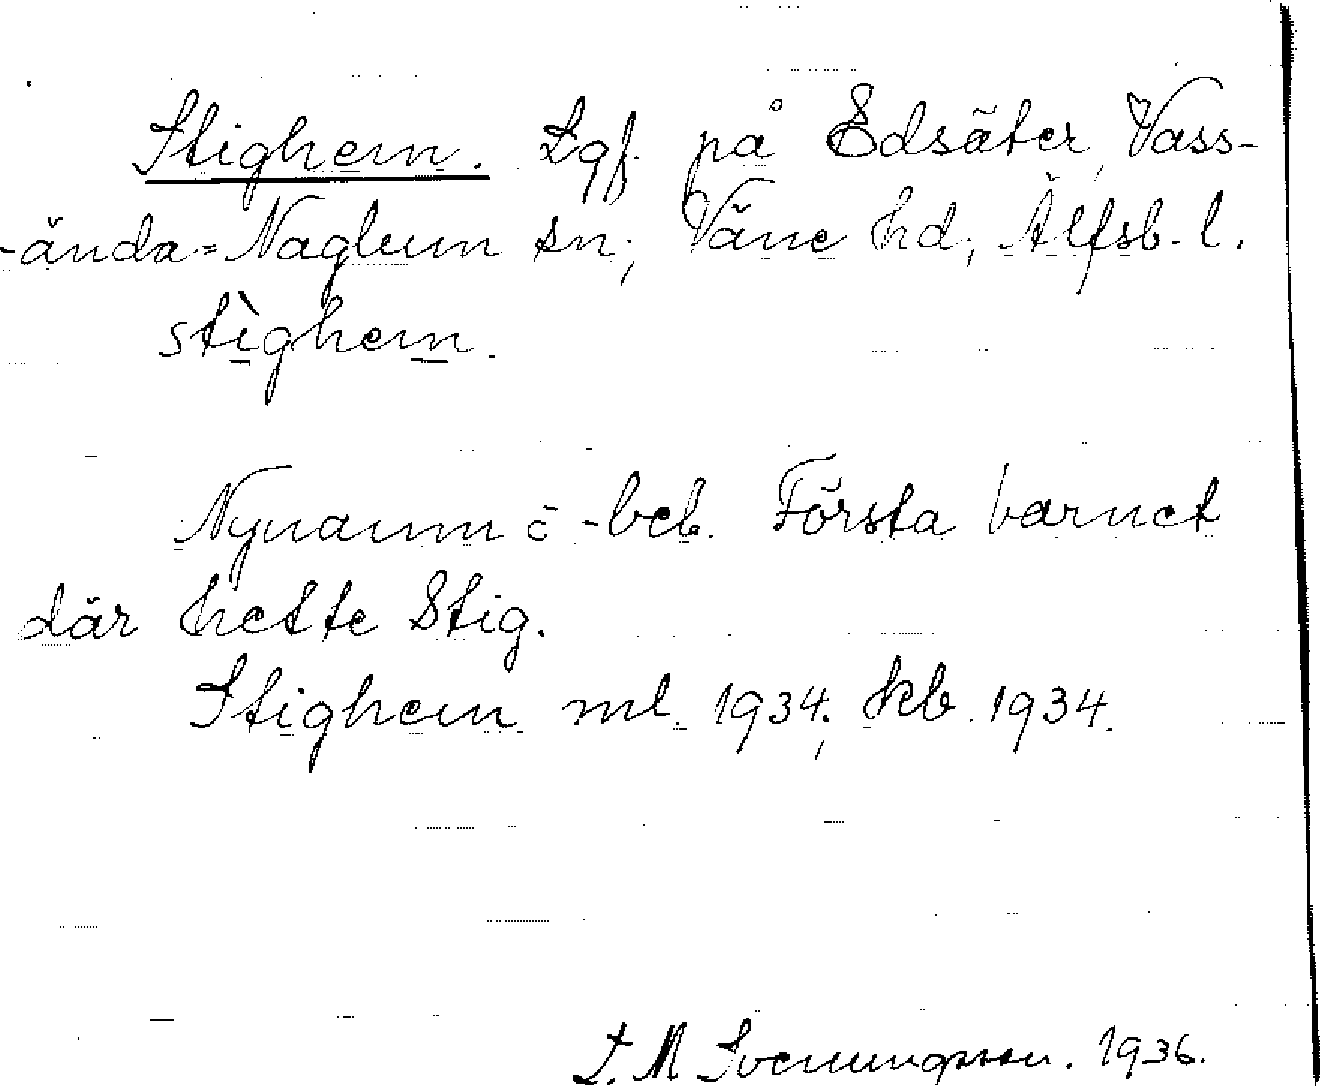 Stighem. Lgf. på Edsäter, Väss-
-ända=Naglum sn; Väne hd, Älfsb. l.
stìghem.
Nynamn o -beb. Första barnet
där hette Stig.
Stighem ml. 1934; kb. 1934.
L. M Svenungsson. 1936.